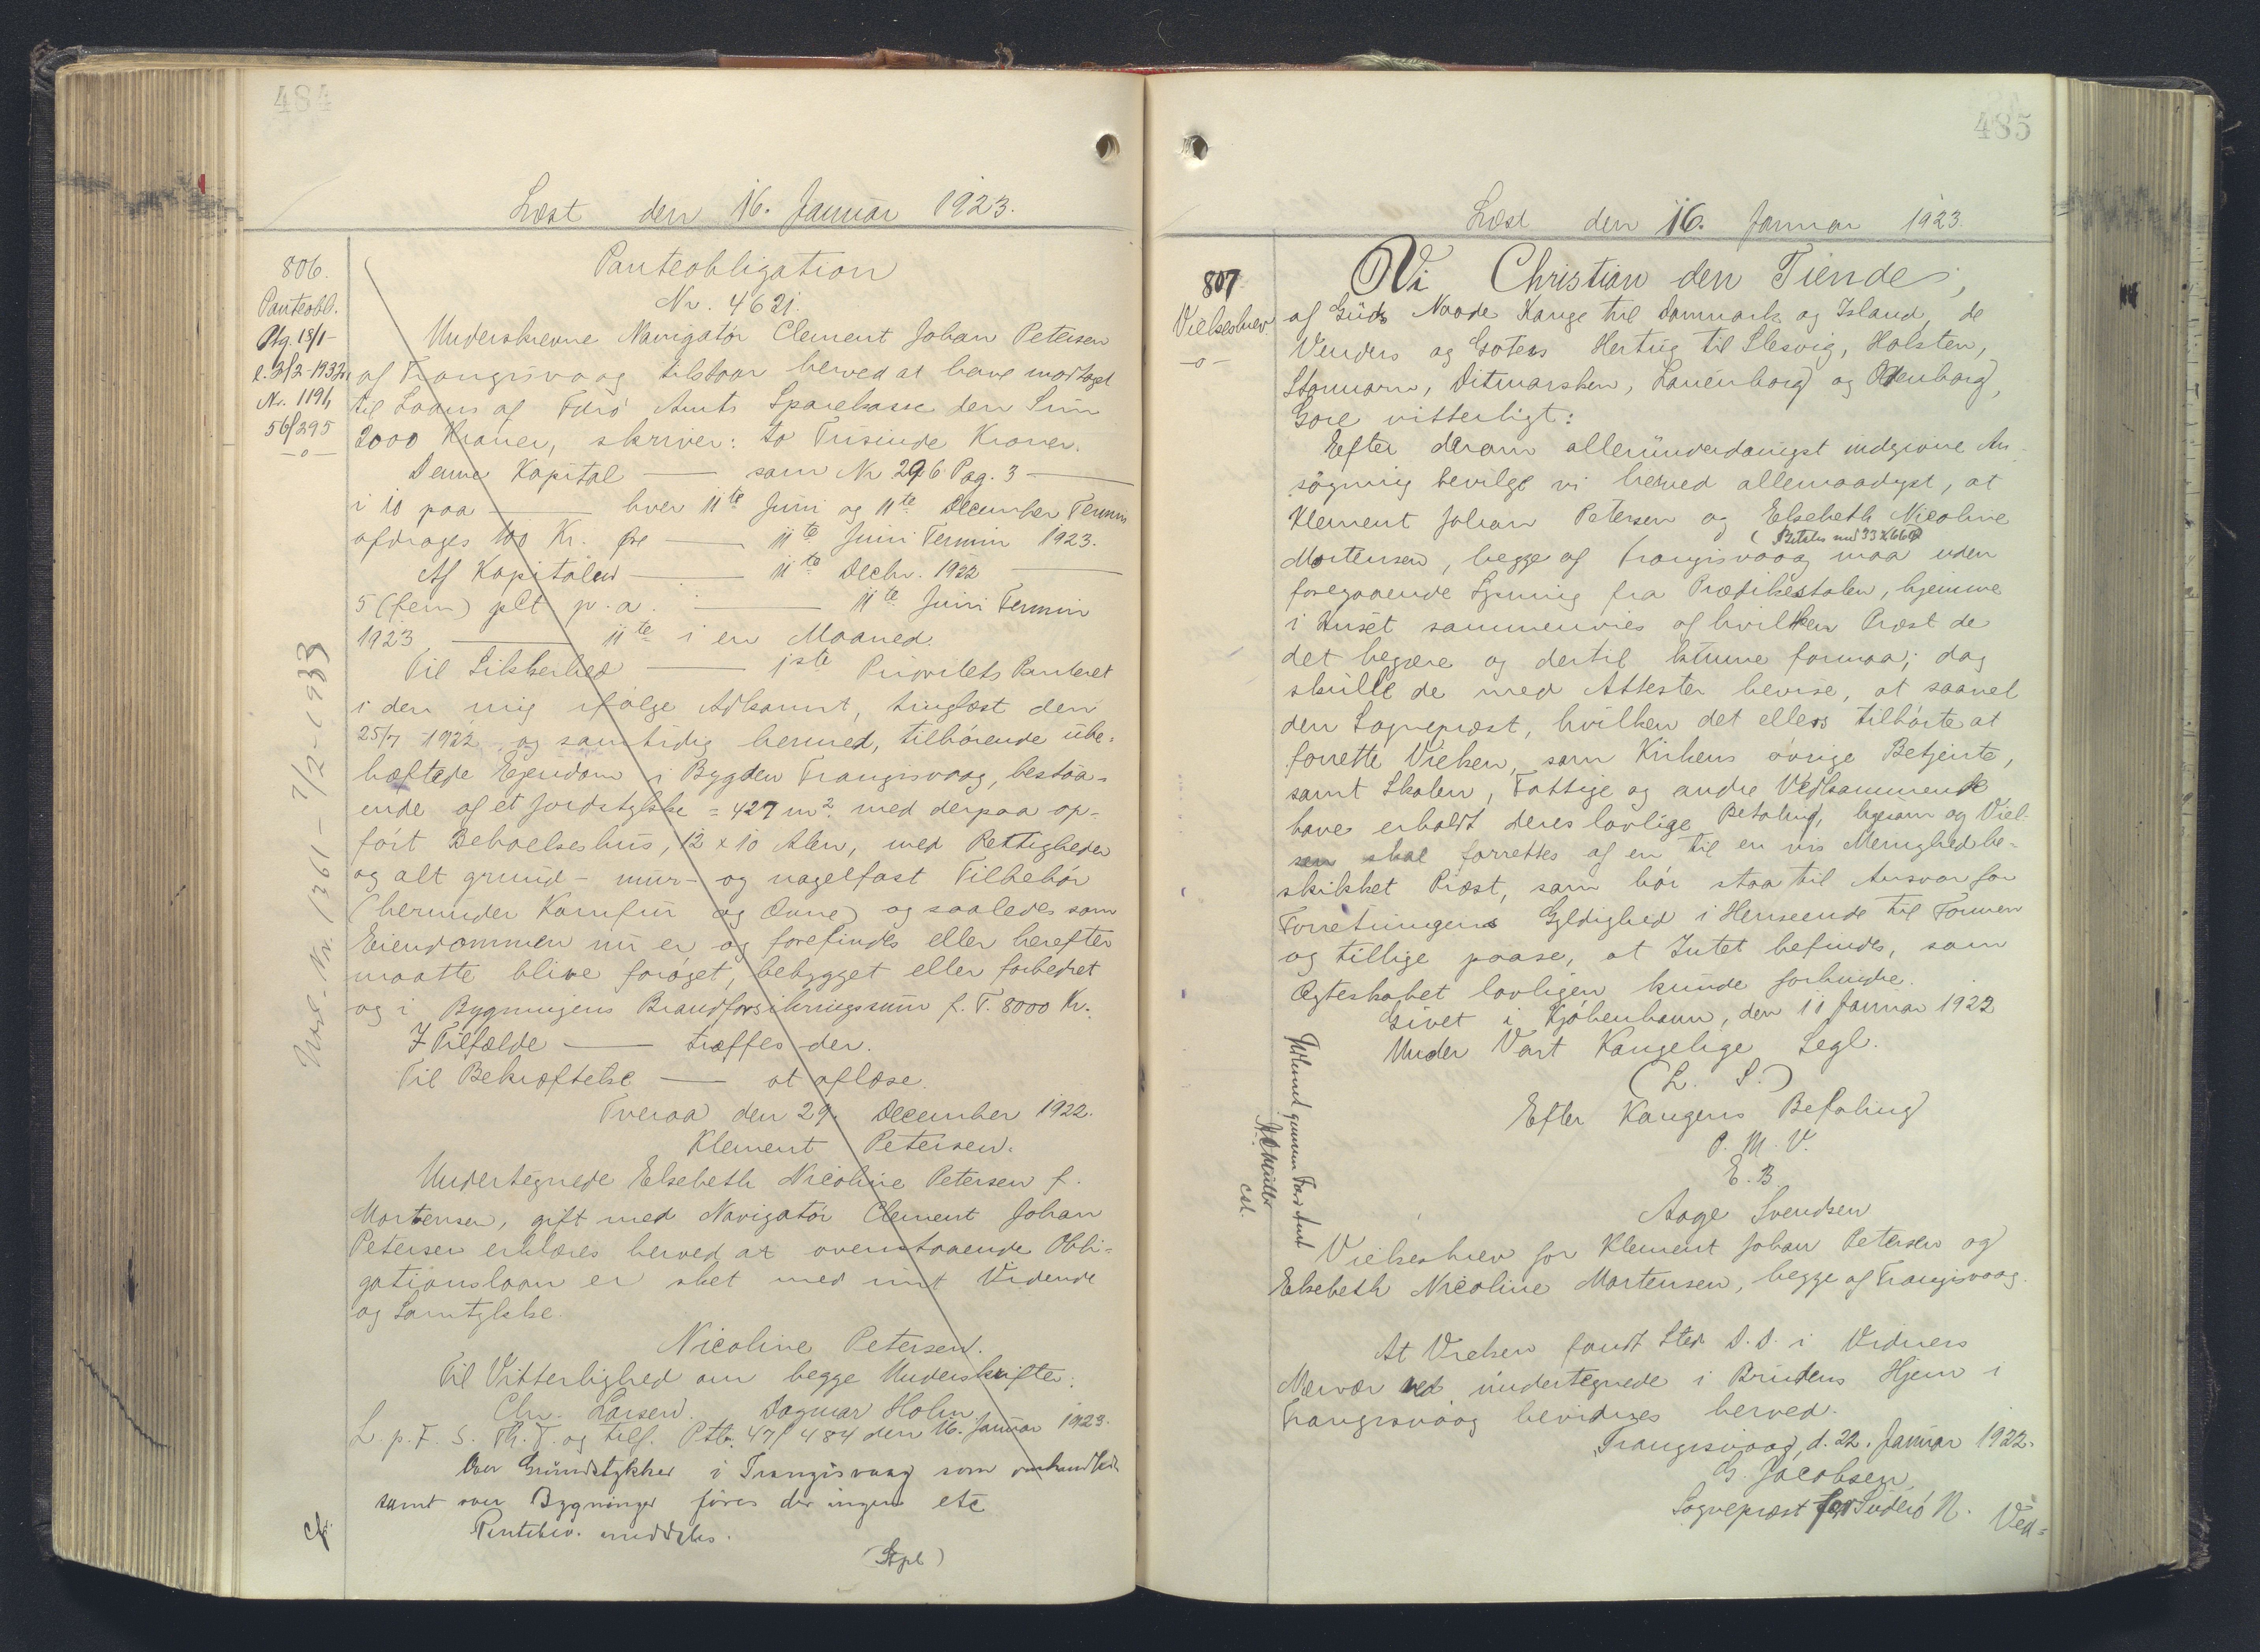 484
Læst den 16. Januar 1923.
806.
Panteobl.
Qtg. 18/1-
l. 2/2-1932,
Nr. 1194
56/295
-o-
Panteobligation
Nr. 4621.
Underskrevne Navigatør Clement Johan Petersen
af Trangisvaag tilstaar herved at have modtaget
til Laans af Færø Amts Sparekasse den Sum
2000 Kroner, skriver: to Tusinde Kroner.
Denne Kapital — som Nr 296 Pag. 3 —
i 10 paa — hver 11te Juni og 11te December Termin
afdrages 100 Kr. Øre — 11te Juni Termin 1923.
Af Kapitalen — 11te Decbr. 1922 —
5 (fem) pCt p. a. — 11te Juni Termin
1923 — 11te i en Maaned.
Til Sikkerhed — 1ste Prioritets Panteret
i den mig ifølge Adkomst, tinglæst den
25/7 1922 og samtidig hermed, tilhørende ube-
hæftede Ejendom i Bygden Trangisvaag, bestaa-
ende af et Jordstykke = 427 m². med derpaa op-
ført Beboelseshus, 12 x 10 Alen, med Rettigheder
og alt grund- mur- og nagelfast Tilbehør
(herunder Komfur og Ovne) og saaledes som
Eiendommen nu er og forefindes eller herefter
maatte blive forøget, bebygget eller forbedret
og i Bygningens Brandforsikringssum f. T. 8000 Kr.
I Tilfælde — træffes der.
Til Bekræftelse — at aflæse.
Tveraa den 29. December 1922.
Klement Petersen.
Undertegnede Elsebeth Nicoline Petersen f.
Mortensen, gift med Navigatør Clement Johan
Petersen erklæres herved at ovenstaaende Obli-
gationslaan er sket med mit Vidende
og Samtykke.
Nicoline Petersen.
Til Vitterlighed om begge Underskrifter:
Chr. Larsen. Dagmar Holm.
L. p. F. S. Th. T. og tilf. Ptb. 47/484 den 16. Januar 1923.
Over Grundstykket i Trangisvaag som omhandlet
samt over Bygninger føres der ingen etc
Pantebev. meddeles.
(Stpl)
cf.
Nr. 1361 - 7/2-1933
485
Læst den 16. Januar 1923.
807
Vielsesbrev
-o-
Vi Christian den Tiende,
af Guds Naade Konge til Danmark og Island, de
Venders og Goters Hertug til Slesvig, Holsten,
Stormarn, Ditmarsken, Lauenborg og Oldenborg,
Gøre vitterligt:
Efter derom allerunderdanigst indgivne An-
søgning bevilge vi herved allernaadigst, at
Klement Johan Petersen og Elsebeth Nicoline
(Betales med 33 K 66 Ø)
Mortensen, begge af Trangisvaag maa uden
foregaaende Lysning fra Prædikestolen, hjemme
i Huset sammenvies af hvilken Præst de
det begære og dertil kunne formaa; dog
skulle de med Attester bevise, at saavel
den Sognepræst, hvilken det ellers tilhørte at
forrette Vielsen, som Kirkens øvrige Betjente,
samt Skolen, Fattige og andre Vedkommende
have erholdt deres lovlige Betaling, ligesom og Viel-
sen skal forrettes af en til en vis Menighed be-
skikket Præst, som bør staa til Ansvar for
Forretningens Gyldighed i Henseende til Formen
og tillige paase, at Intet befindes, som
Ægteskabet lovligen kunde forhindre.
Givet i Kjøbenhavn, den 10 Januar 1922
Under Vort Kongelige Segl.
(L. S.)
Efter Kongens Befaling
P. M. V.
E. B.
Aage Svendsen
Vielsesbrev for Klement Johan Petersen og
Elsebeth Nicoline Mortensen, begge af Trangisvaag.
At Vielsen fandt Sted D. D. i Vidners
Nærvær ved undertegnede i Brudens Hjem i
Trangisvaag bevidnes herved.
Trangisvaag, d. 22. Januar 1922.
G. Jacobsen
Sognepræst for Suderø N. Ved-
gennem Færø Amt
cst.